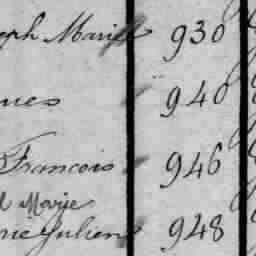 eph Marie 930
nes 940
Francois 946
Marije
rie Julien 948